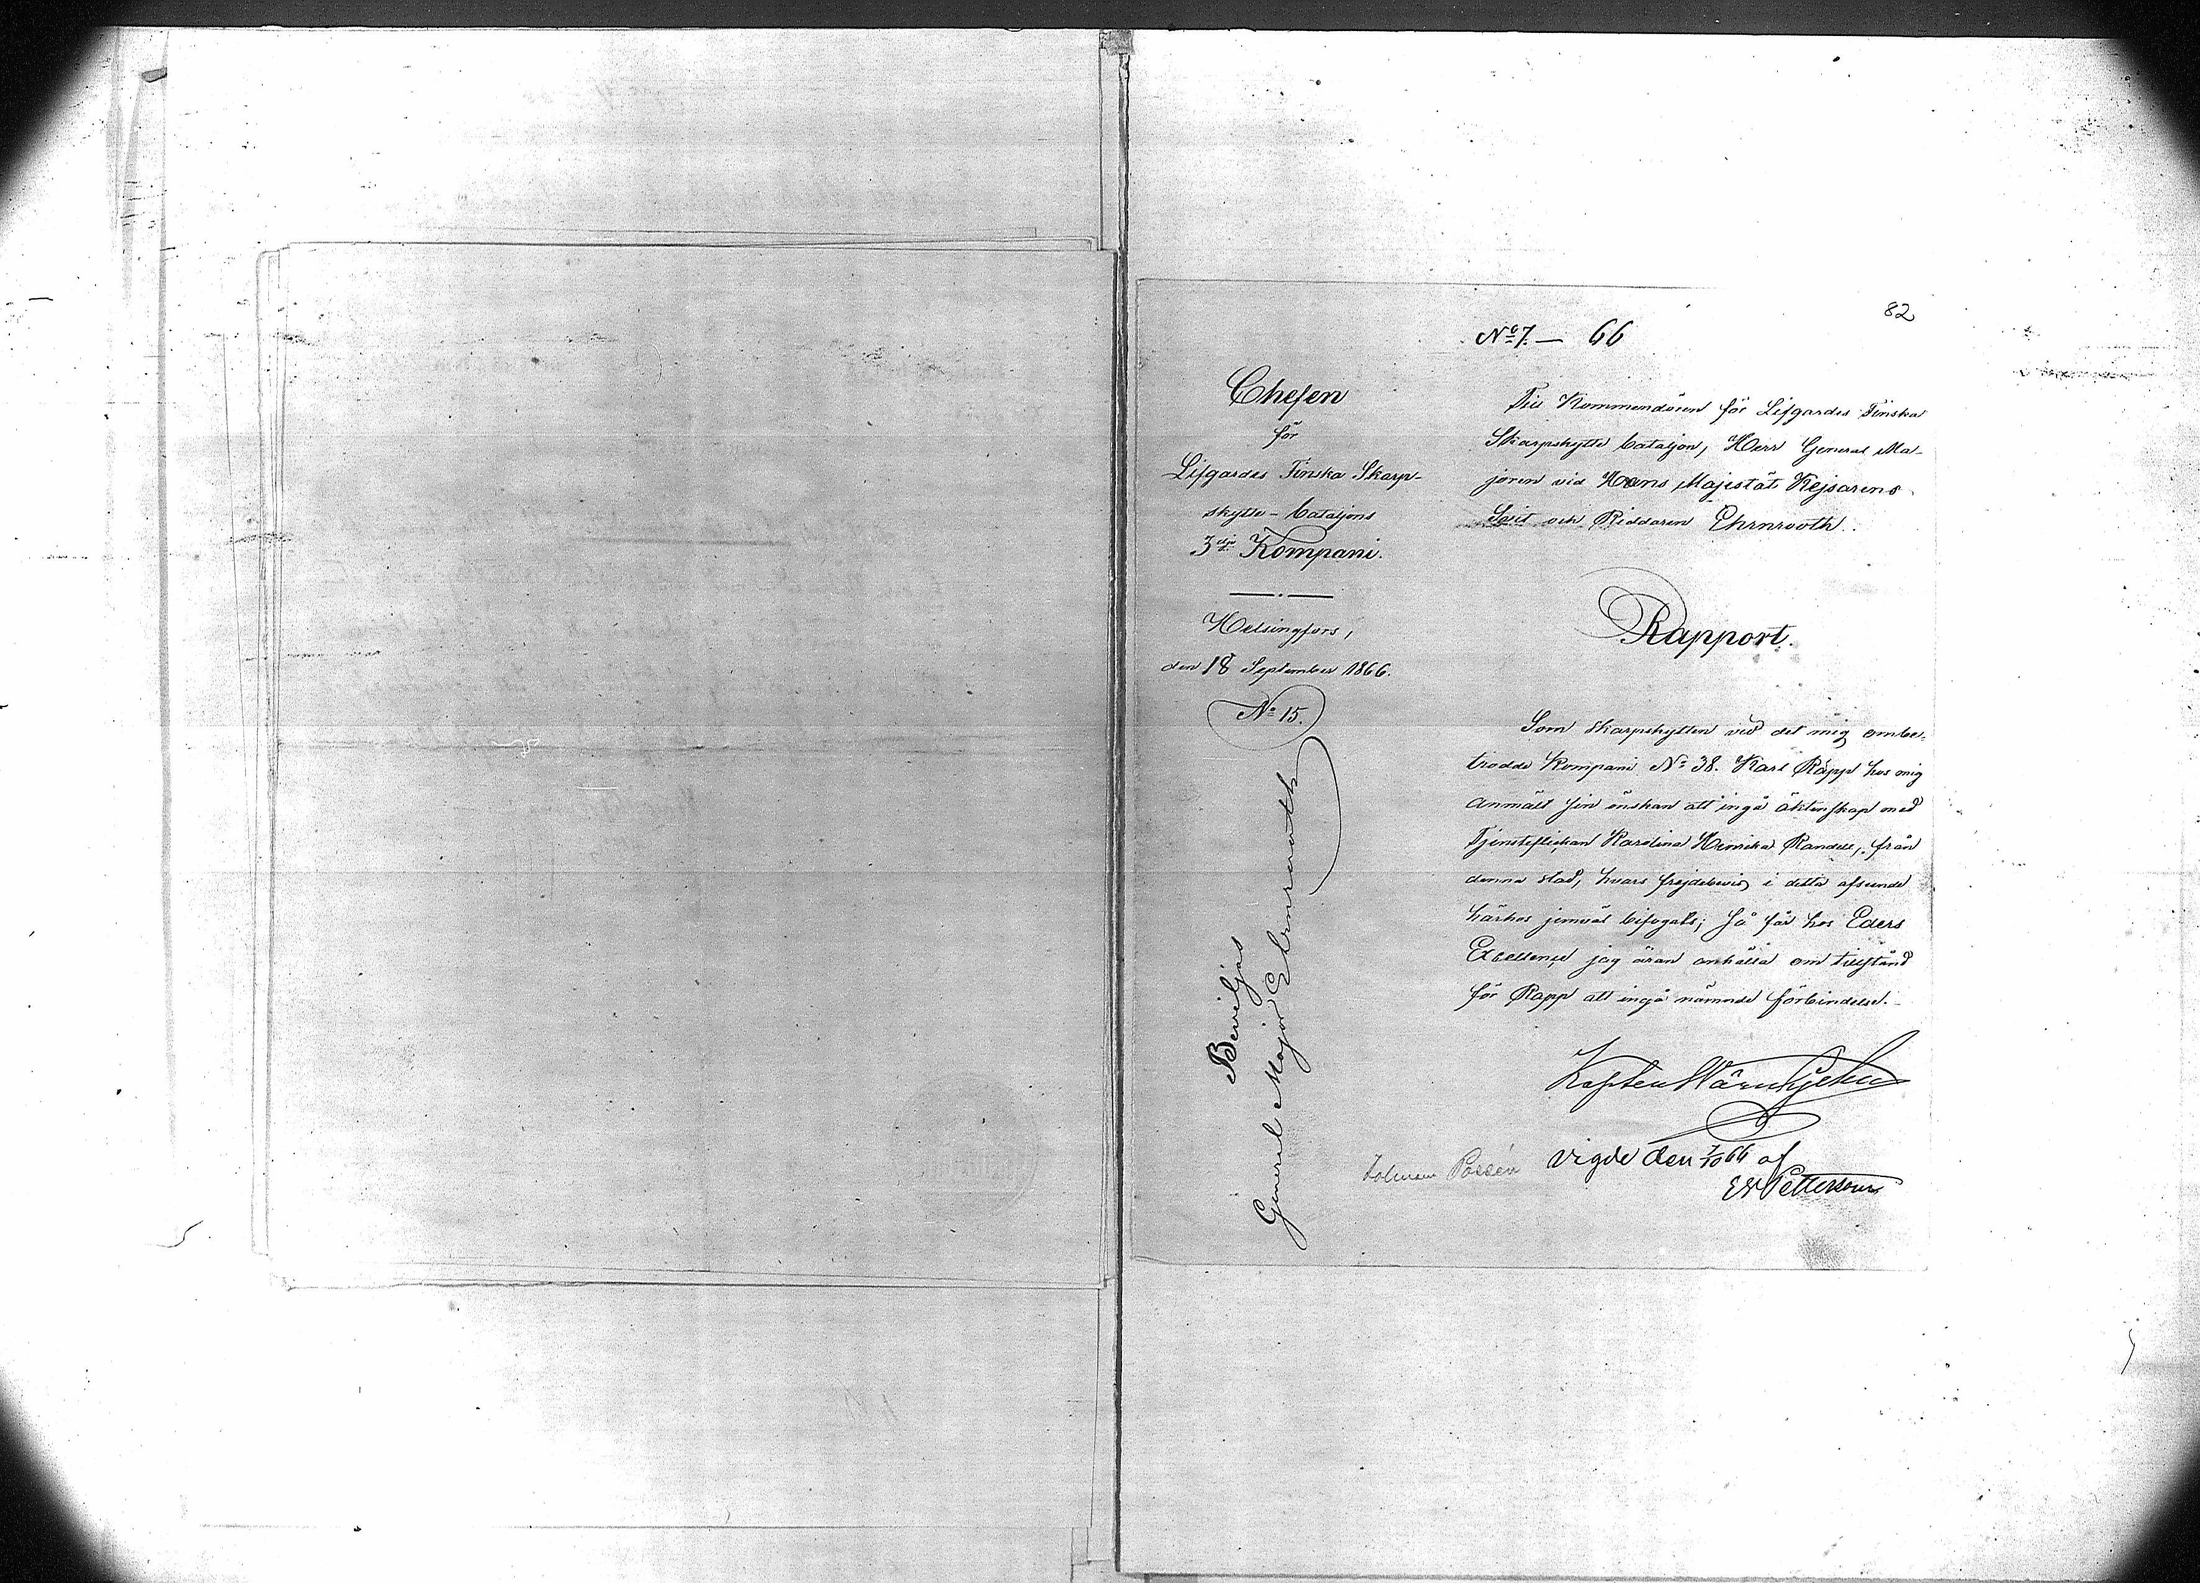 82
No 7. — 66
Chefen
för
Lifgardes Finska Skarp-
skytte-bataljons
3dje Kompani.
Helsingfors,
den 18 September 1866.
No 15.
Till Kommendören för Lifgardes Finska
Skarpskytte bataljon, Herr General Ma-
joren vid Hans Majestät Kejsarens
Svit och Riddaren Ehrnrooth.
Rapport.
Som skarpskytten vid det mig ombe-
trodde Kompani No 38. Karl Rapp hos mig
anmält sin önskan att ingå äktenskap med
Tjensteflickan Karolina Henrika Randell, från
denna stad, hvars frejdebevis i detta afseende
härhos jemväl bifogats; Så får hos Eders
Excellence jag äran anhålla om tillstånd
för Rapp att ingå nämnde förbindelse.
Kapten Wärnhjelm
Beviljas
General Major Ehrnrooth
Possén
Vigde den 7/10 66 af
Pettersson